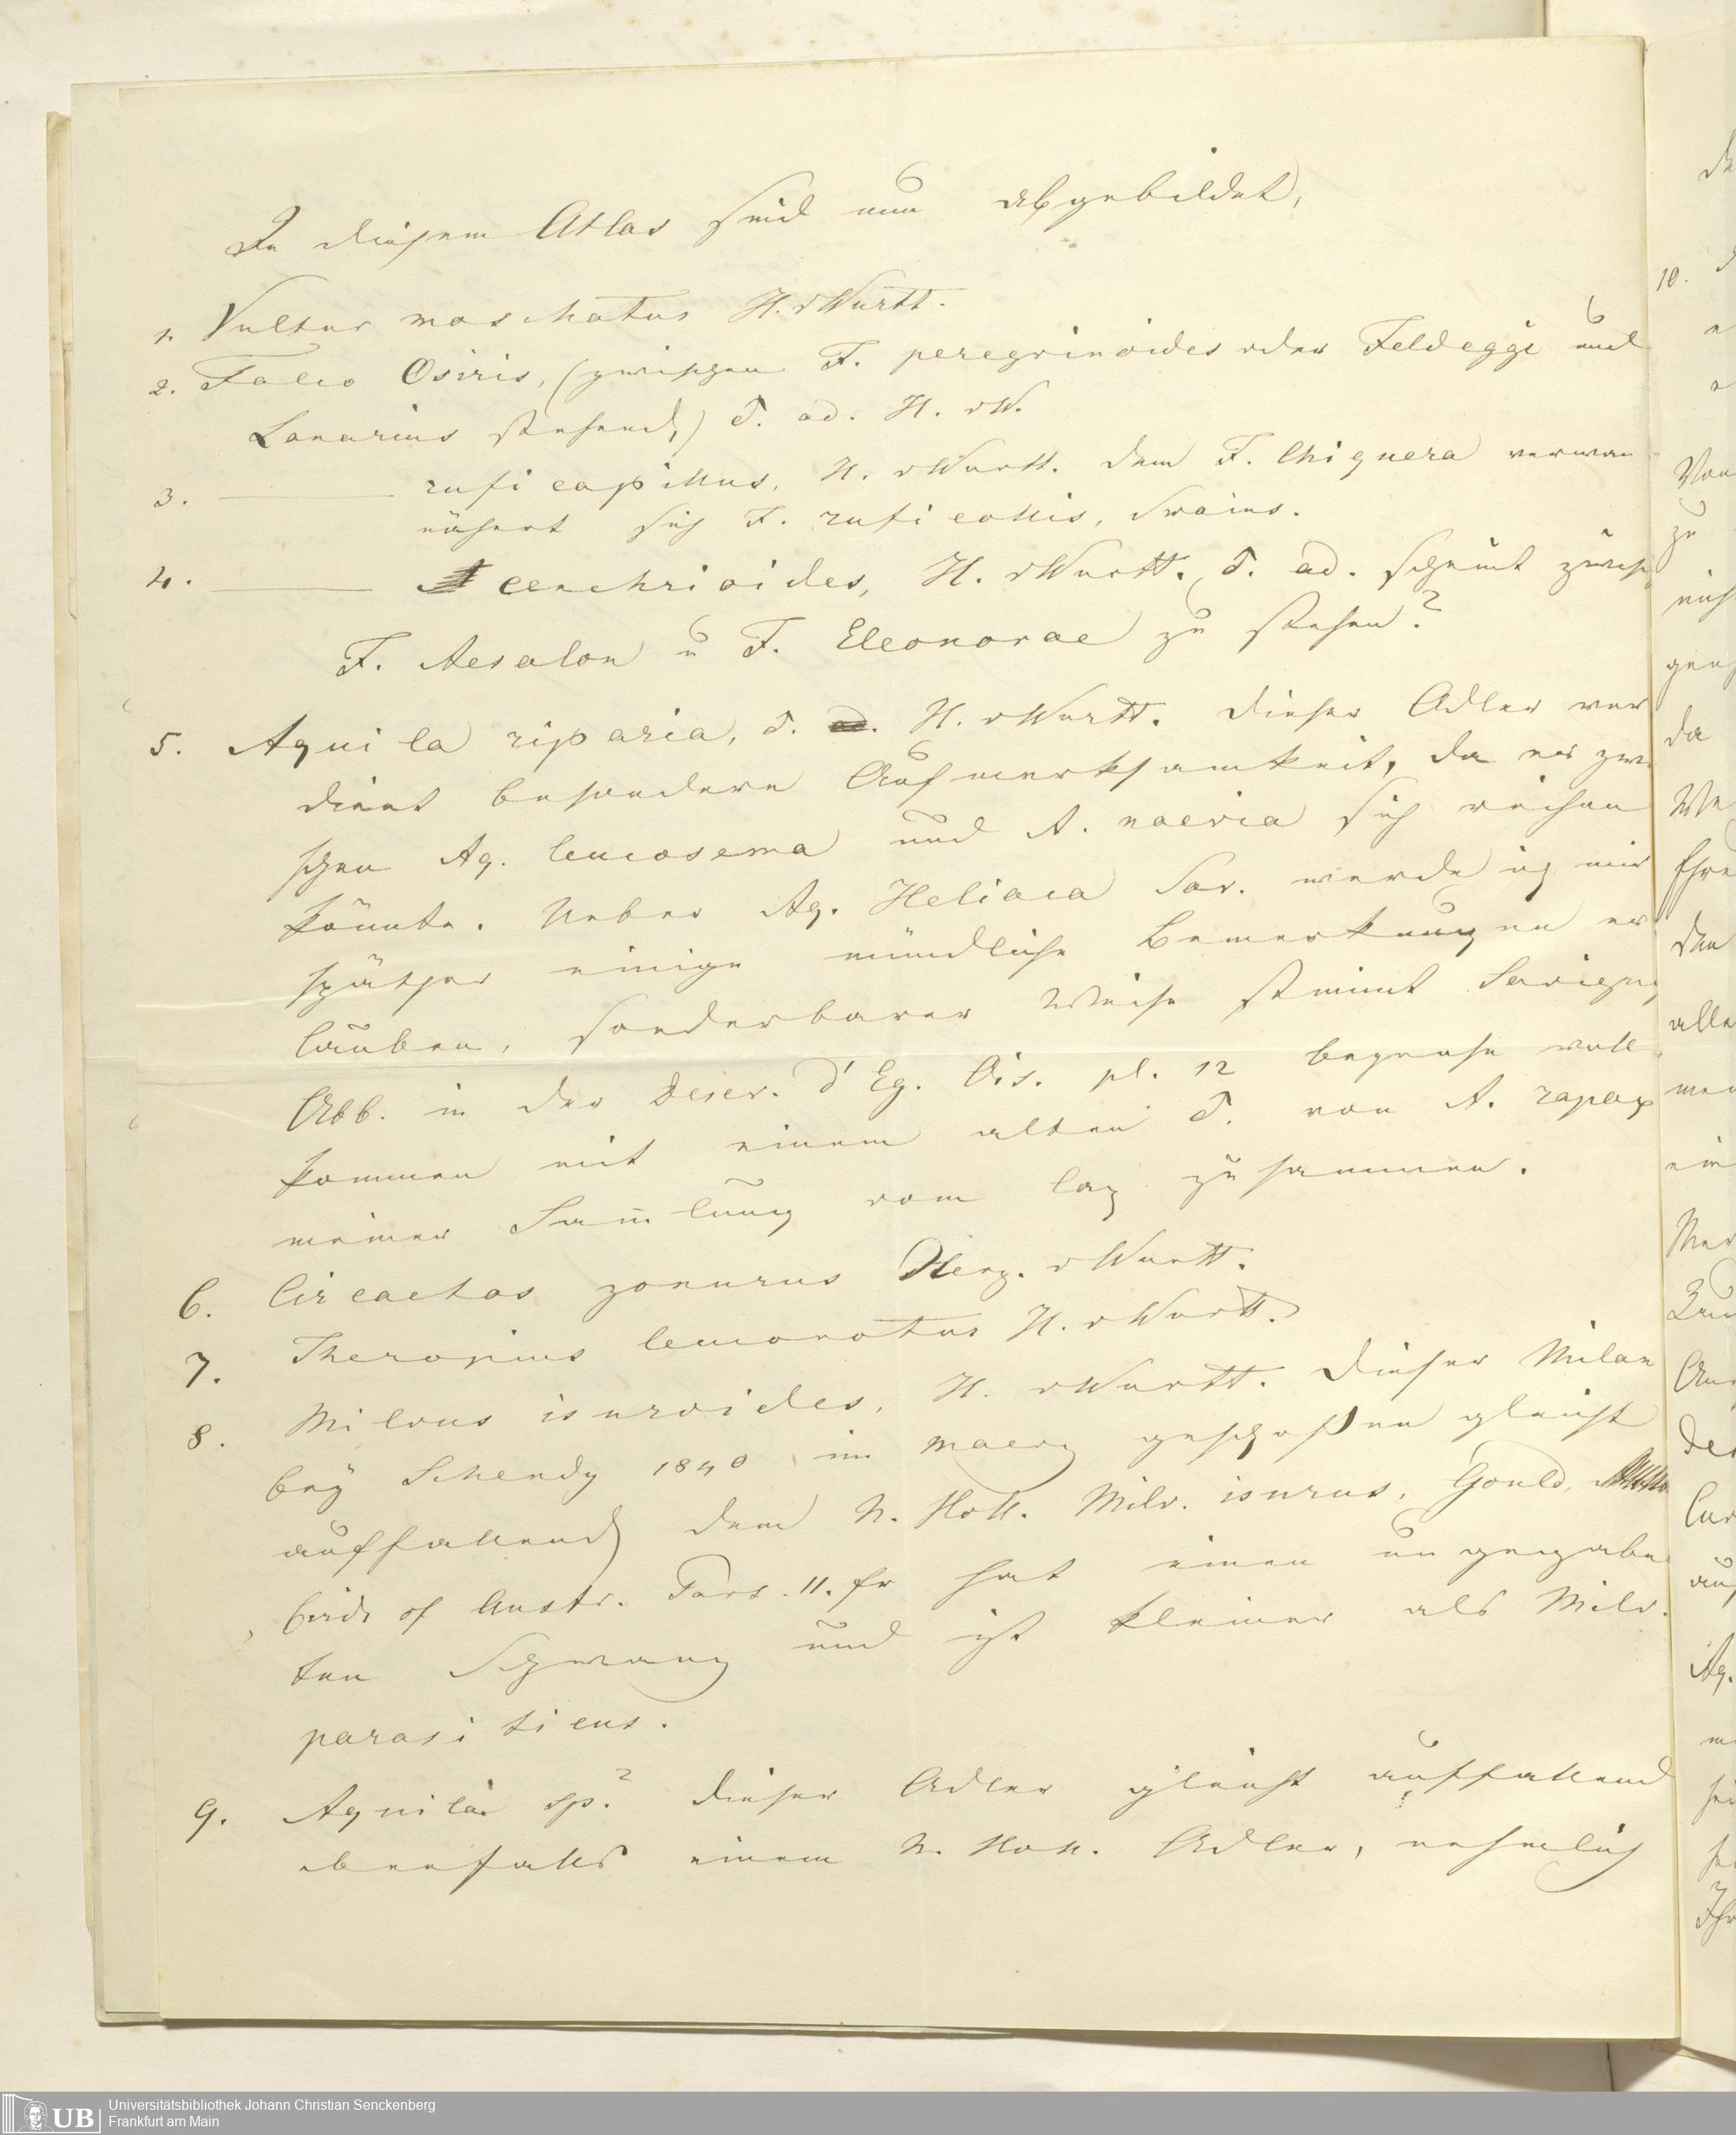 In diesem Atlas sind nun abgebildet,
1. Vultur moschatus H. v Württ.
2. Falco Osiris, (zwischen F. peregrinoides oder Feldeggi und
Lanarius stehend,) ♂. ad. H. v W.
3. ——— ruficapillus, H. v Württ. dem F. Chiquera verwan
nähert sich F. ruficollis, Swains.
4. ——— cenchrioides, H. v Württ. ♂. ad. scheint zwisch
F. Aesalon u F. Eleonorae zu stehen?
5. Aquila riparia, ♂. ad. H. v Württ. dieser Adler ver
dient besondere Aufmerksamkeit, da er zwi
schen Aq. leucosema und A. naevia sich reihen
könnte. Ueber Aq. Heliaca Sav. werde ich mir
später einige mündliche Bemerkungen er
lauben, sonderbarer Weise stimmt Savigny
Abb. in der Descr. d'Eg. Ois. pl. 12 beynahe voll
kommen mit einem alten ♂. von A. rapax
meiner Sammlung vom Cap zusammen.
6. Circaetos zonurus Herz. v Württ.
7. Theropius leuconotus H. v Württ.
8. Milvus isuroides, H. v Württ. dieser Milan
bey Schendy 1840 im Maerz geschoßen gleicht
auffallend dem N. Holl. Milv. isurus, Gould,
birds of Austr. Pars. 11. Er hat einen ungegabel
ten Schwanz und ist kleiner als Milv.
parasiticus.
9. Aquila sp? dieser Adler gleicht auffallend
ebenfalls einem N. Holl. Adler, nehmlich
10.
Universitätsbibliothek Johann Christian Senckenberg
Frankfurt am Main
UB